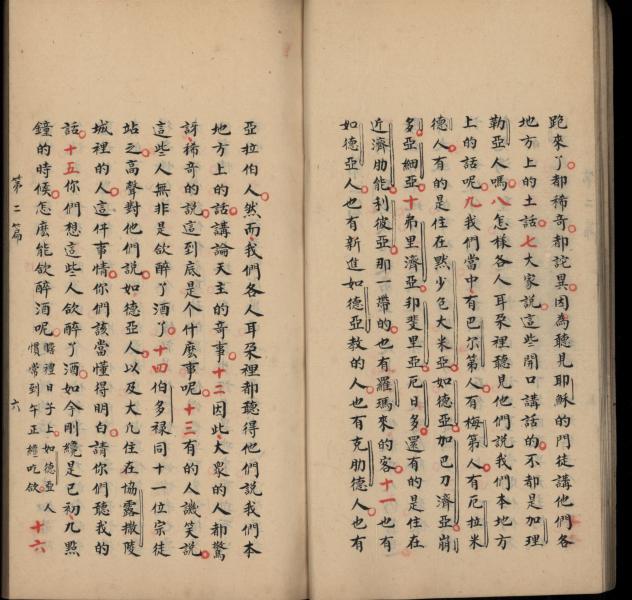 跑來了都稀奇都詫異因為聽見耶穌的門徒講他們各
地方上的土話七大家說這些開口講話的不都是加理
勒亞人嗎八怎樣各人耳朶裡聽見他們說我們本地方
上的話呢九我們當中有巴尔第人有梅第人有厄拉米
德人有的是住在默少包大米亞如德亞加巴刀濟亞崩
多亞細亞十弗里濟亞邦斐里亞厄日多還有的是住在
近濟肋能利彼亞那一帶的也有羅瑪來的客十一也有
如德亞人也有新進如德亞教的人也有克肋德人也有
亞拉伯人然而我們各人耳朶裡都聽得他們說我們本
地方上的話講論天主的奇事十二因此大衆的人都驚
訝稀奇的說這到底是个什麽事呢十三有的人譏笑說
這些人無非是飲醉了酒了十四伯多禄同十一位宗徒
站之高聲對他們說如德亞人以及大凡住在協露撒陵
城裡的人這件事情你們該當懂得明白請你們聽我的
話十五你們想這些人飲醉了酒如今剛纔是巳初九點
鐘的時候怎麽能飲醉酒呢瞻禮日子上如德亞人慣常到午正纔吃飲十六
第二篇 六